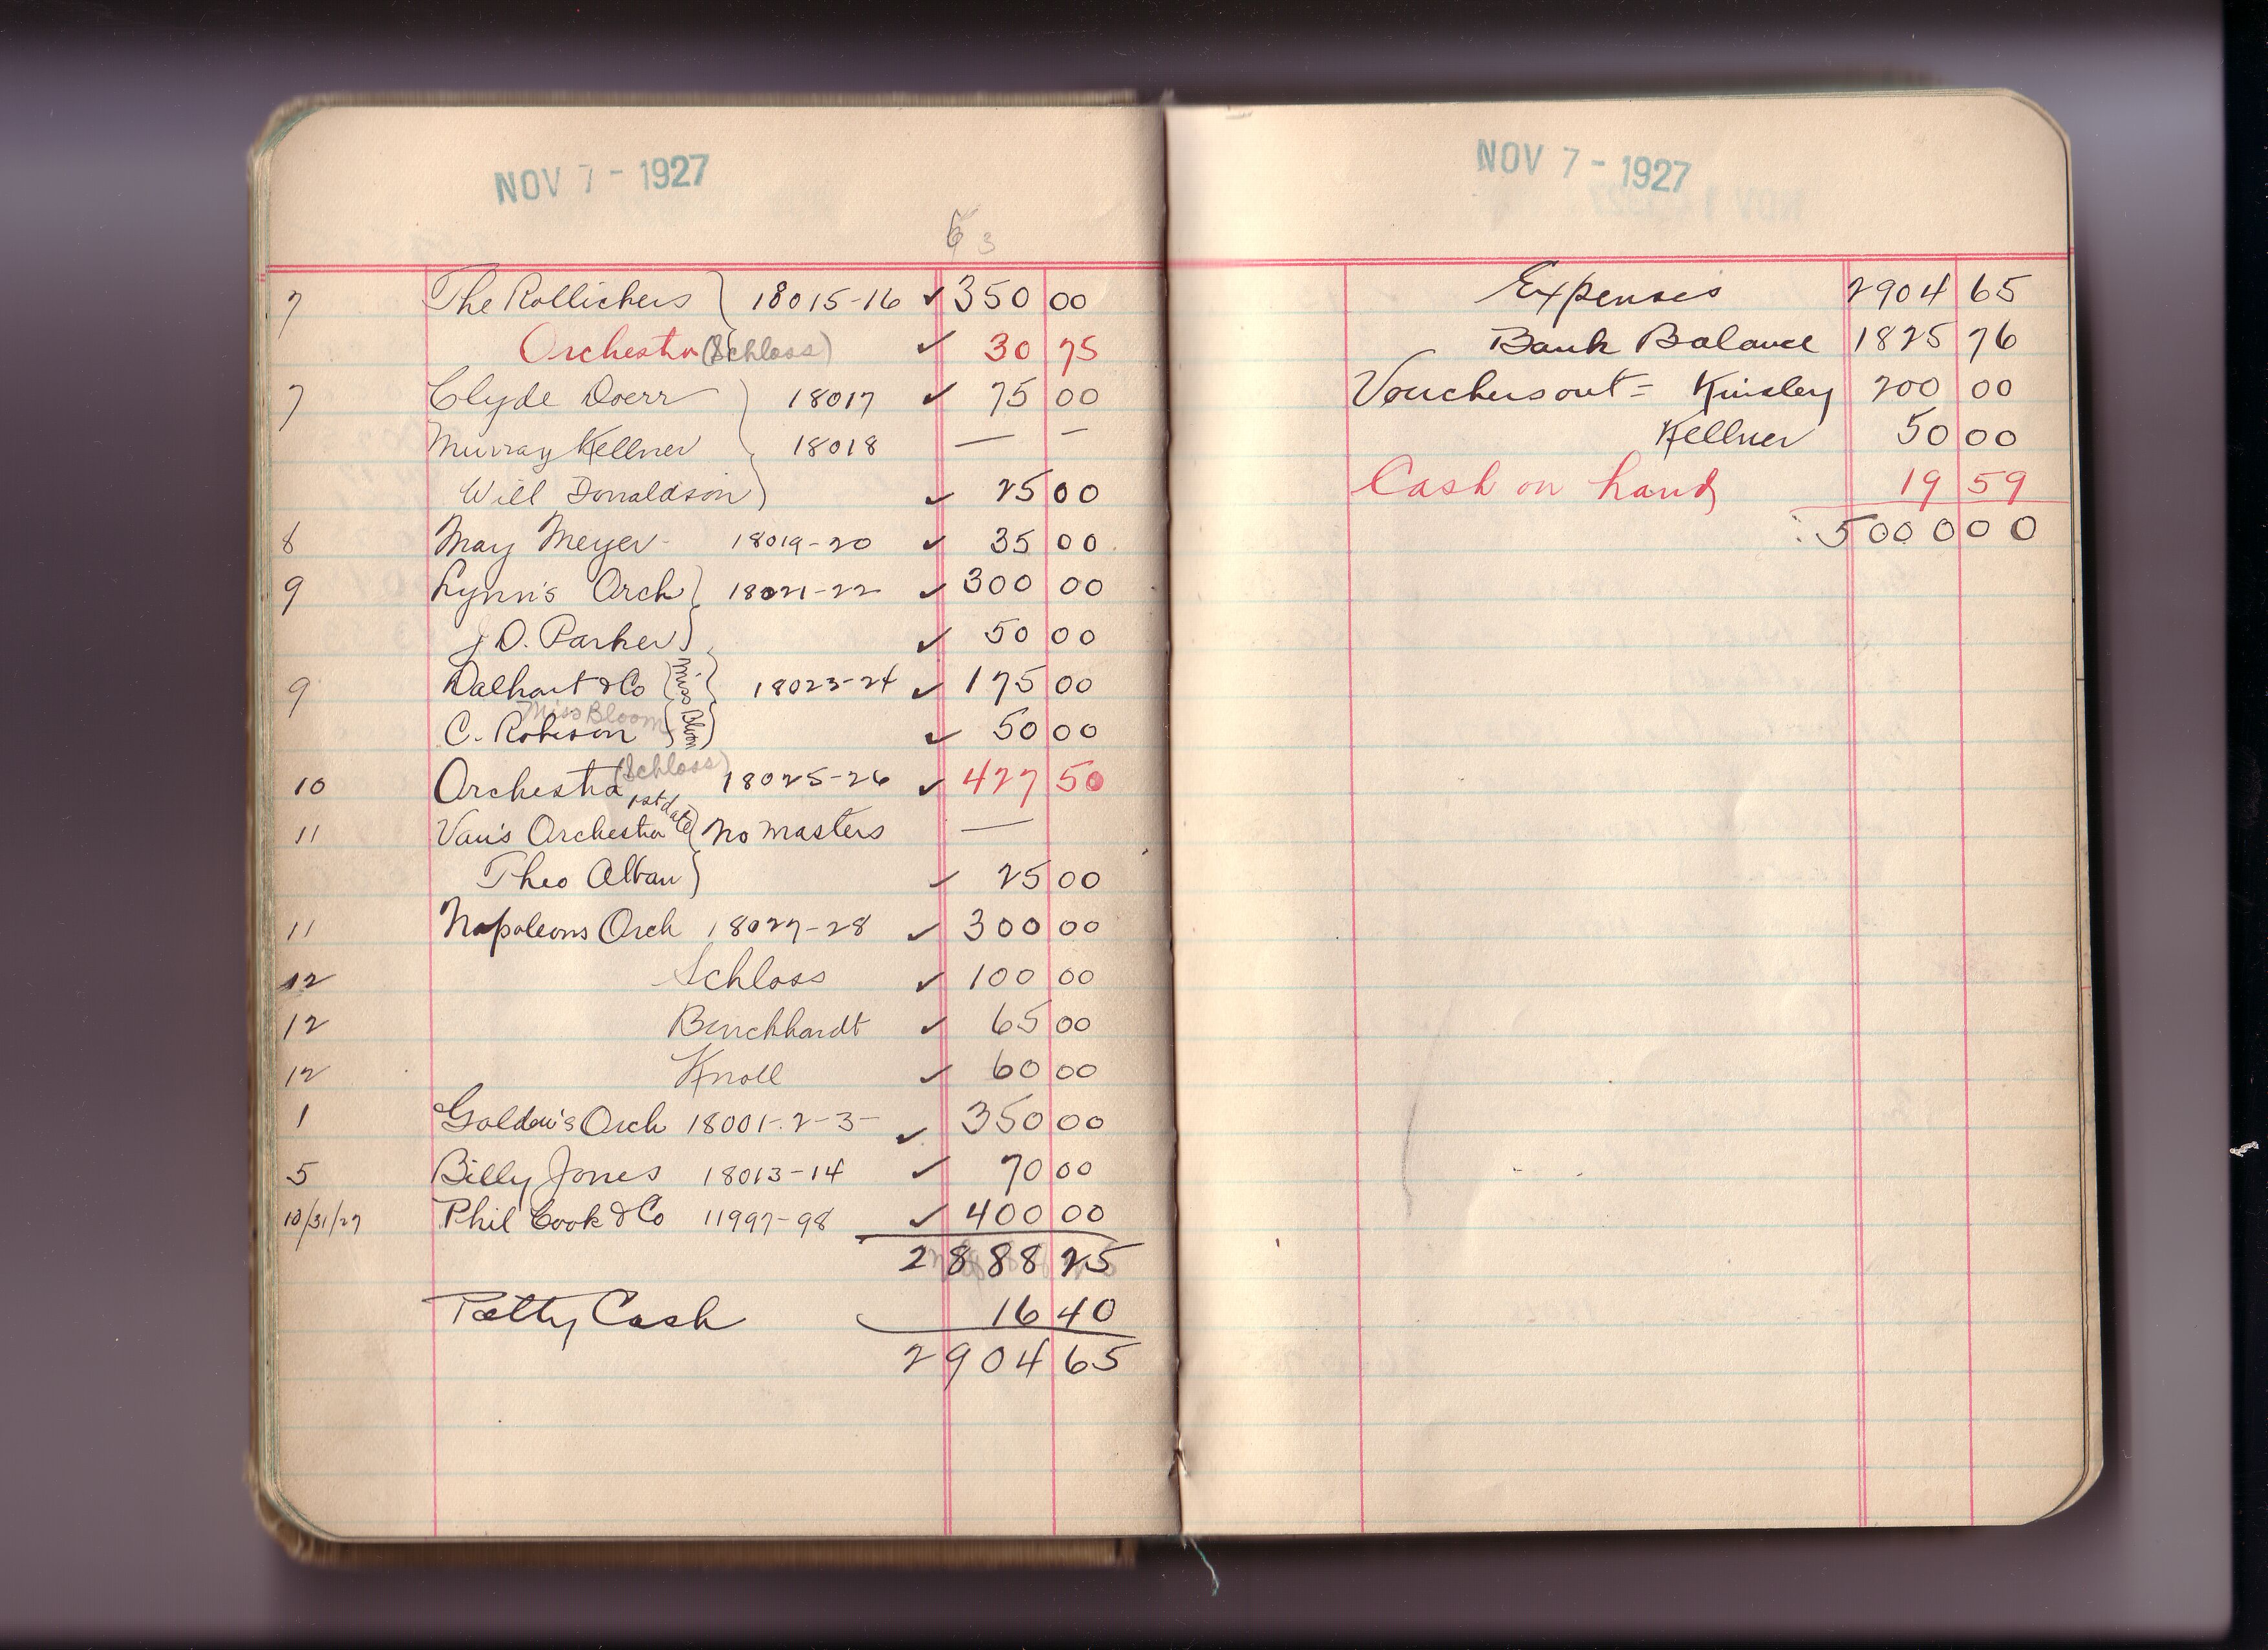 NOV 7 - 1927
7 The Rollickers } 18015-16 ✓ 350 00
Orchestra (Schloss) ✓ 30 75
7 Clyde Doerr } 18017 ✓ 75 00
Murray Kellner } 18018 — –
Will Donaldson ) ✓ 25 00
8 May Meyer - 18019-20 ✓ 35 00
9 Lynn's Orch } 18021-22 ✓ 300 00
J D. Parker } ✓ 50 00
9 Dalhart & Co { Miss Bloom } 18023-24 ✓ 175 00
Miss Bloom
C. Robison ✓ 50 00
(Schloss)
10 Orchestra 18025-26 ✓ 427 50
1st date
11 Van's Orchestra { No masters —
Theo Alban } ✓ 25 00
11 Napoleons Orch 18027-28 ✓ 300 00
12 Schloss ✓ 100 00
12 Burckhardt ✓ 65 00
12 Knoll ✓ 60 00
1 Golden's Orch 18001-2-3- ✓ 350 00
5 Billy Jones 18013-14 ✓ 70 00
10/31/27 Phil Cook & Co 11997-98 ✓ 400 00
2888 25
Petty Cash 16 40
2904 65
NOV 7 - 1927
Expenses 2904 65
Bank Balance 1825 76
Vouchers out = Kinsley 200 00
Kellner 50 00
Cash on hand 19 59
5000 00